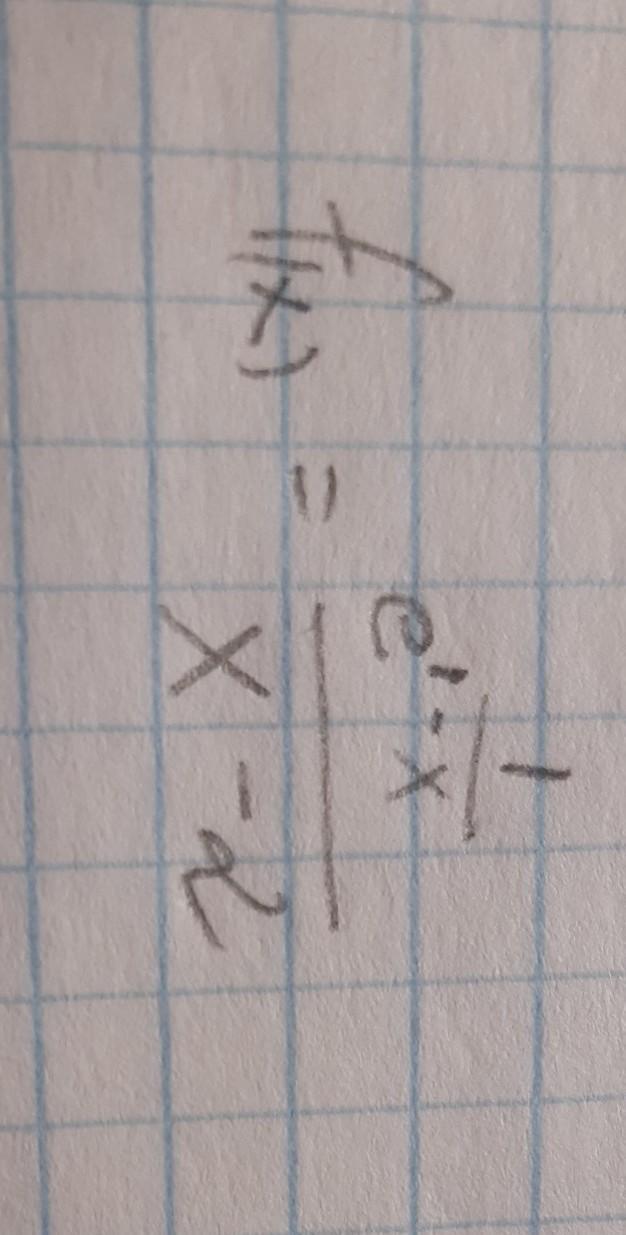 f(x) = \frac{e^{\frac{1}{1-x}}}{x-2}